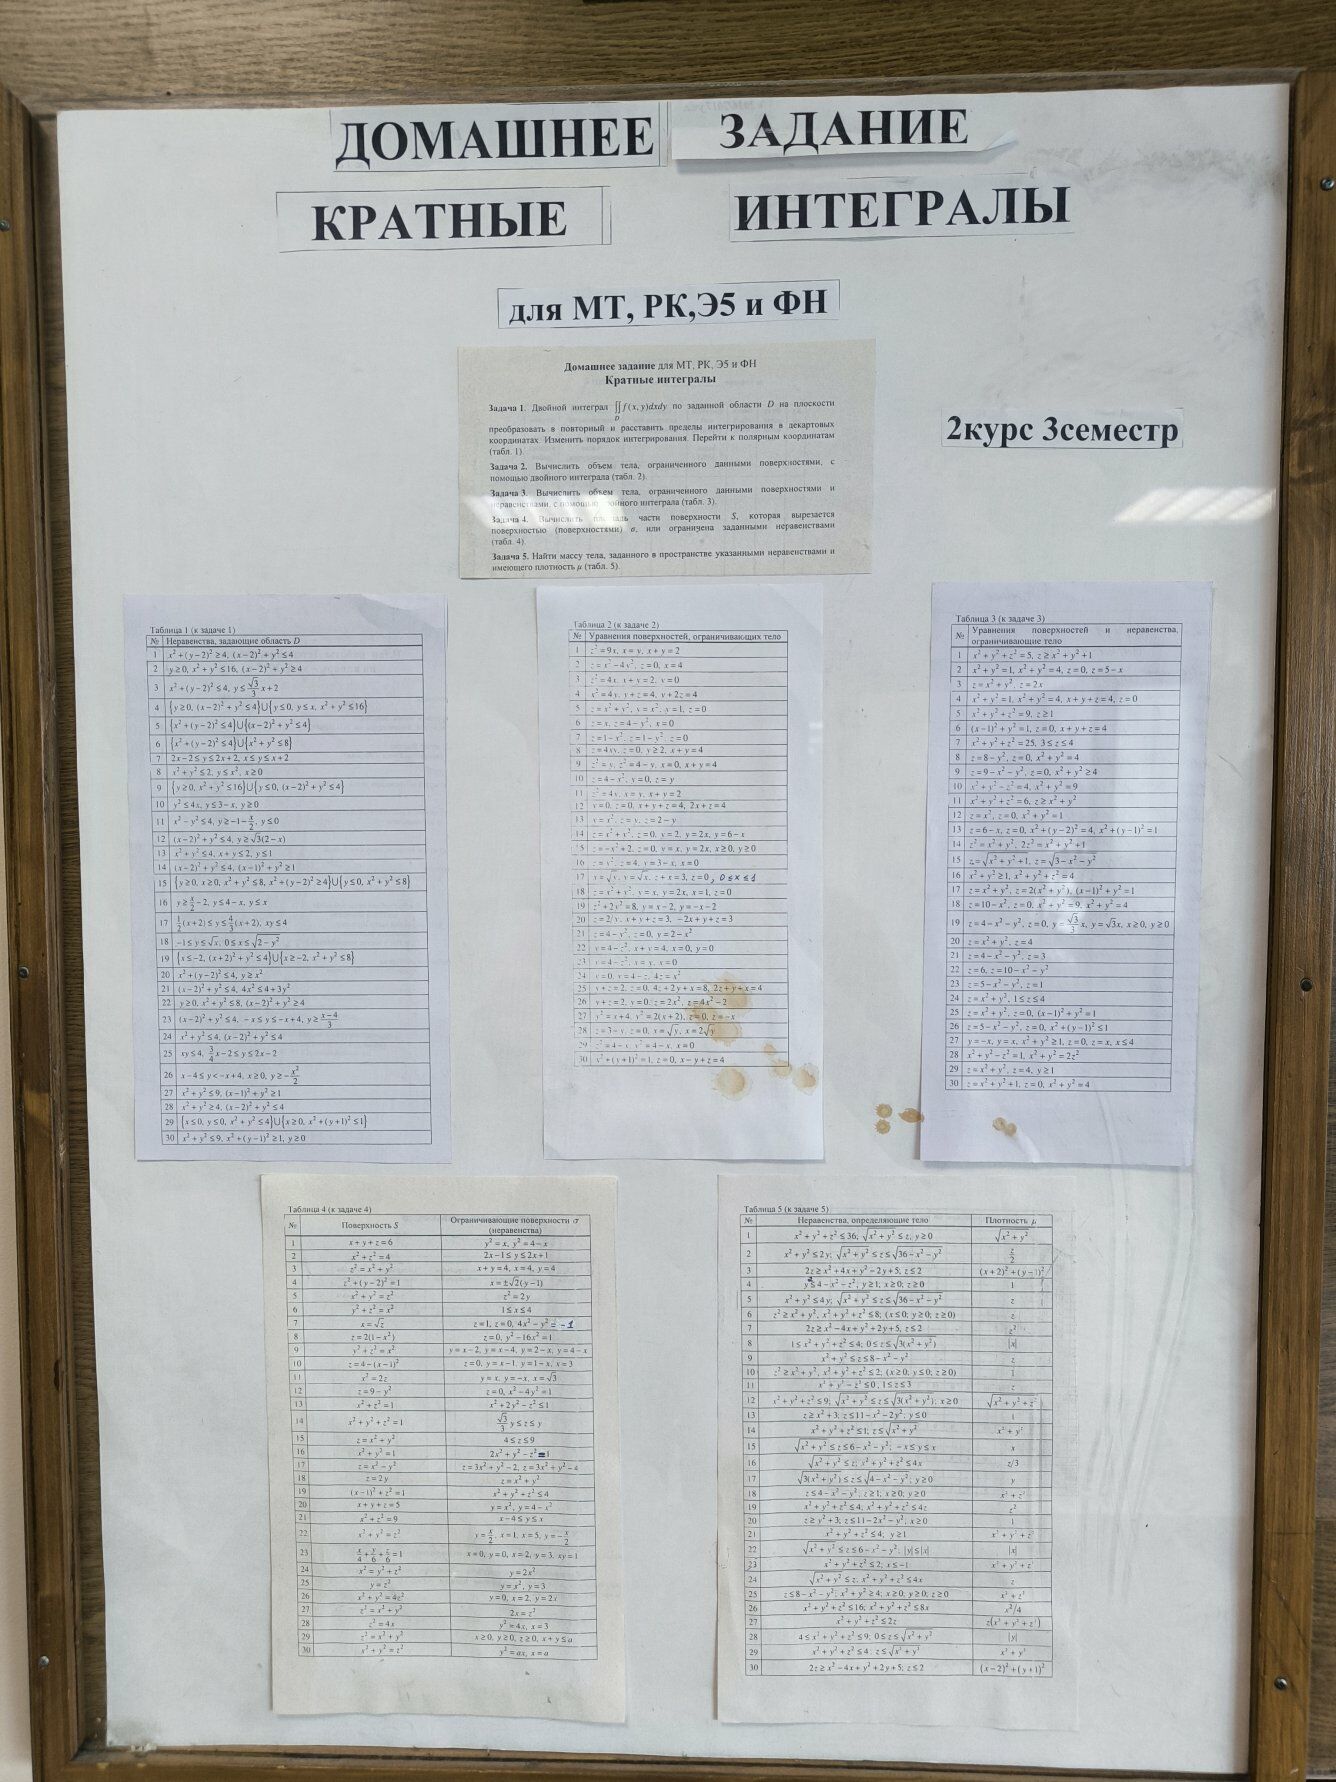 ДОМАШНЕЕ ЗАДАНИЕ
КРАТНЫЕ ИНТЕГРАЛЫ
для МТ, РК,Э5 и ФН
2курс 3семестр
Домашнее задание для МТ, РК, Э5 и ФН
Кратные интегралы
Задача 1. Двойной интеграл ∬f(x, y)dxdy по заданной области D на плоскости
D
преобразовать в повторный и расставить пределы интегрирования в декартовых
координатах. Изменить порядок интегрирования. Перейти к полярным координатам
(табл. 1).
Задача 2. Вычислить объем тела, ограниченного данными поверхностями, с
помощью двойного интеграла (табл. 2).
Задача 3. Вычислить объем тела, ограниченного данными поверхностями и
неравенствами, с помощью тройного интеграла (табл. 3).
Задача 4. Вычислить площадь части поверхности S, которая вырезается
поверхностью (поверхностями) σ, или ограничена заданными неравенствами
(табл. 4).
Задача 5. Найти массу тела, заданного в пространстве указанными неравенствами и
имеющего плотность μ (табл. 5).
Таблица 1 (к задаче 1)
№ Неравенства, задающие область D
1 x²+(y−2)²≥4, (x−2)²+y²≤4
2 y≥0, x²+y²≤16, (x−2)²+y²≥4
3 x²+(y−2)²≤4, y≤√3/3 x+2
4 {y≥0, (x−2)²+y²≤4}∪{y≤0, y≤x, x²+y²≤16}
5 {x²+(y−2)²≤4}∪{(x−2)²+y²≤4}
6 {x²+(y−2)²≤4}∪{x²+y²≤8}
7 2x−2≤y≤2x+2, x≤y≤x+2
8 x²+y²≤2, y≤x², x≥0
9 {y≥0, x²+y²≤16}∪{y≤0, (x−2)²+y²≤4}
10 y²≤4x, y≤3−x, y≥0
11 x²−y²≤4, y≥−1−x/2, y≤0
12 (x−2)²+y²≤4, y≥√3(2−x)
13 x²+y²≤4, x+y≤2, y≤1
14 (x−2)²+y²≤4, (x−1)²+y²≥1
15 {y≥0, x≥0, x²+y²≤8, x²+(y−2)²≥4}∪{y≤0, x²+y²≤8}
16 y≥x/2−2, y≤4−x, y≤x
17 1/2(x+2)≤y≤4/3(x+2), xy≤4
18 −1≤y≤√x, 0≤x≤√2−y²
19 {x≤−2, (x+2)²+y²≤4}∪{x≥−2, x²+y²≤8}
20 x²+(y−2)²≤4, y≥x²
21 (x−2)²+y²≤4, 4x²≤4+3y²
22 y≥0, x²+y²≤8, (x−2)²+y²≥4
23 (x−2)²+y²≤4, −x≤y≤−x+4, y≥(x−4)/3
24 x²+y²≤4, (x−2)²+y²≤4
25 xy≤4, 3/4 x−2≤y≤2x−2
26 x−4≤y<−x+4, x≥0, y≥−x²/2
27 x²+y²≤9, (x−1)²+y²≥1
28 x²+y²≥4, (x−2)²+y²≤4
29 {x≤0, y≤0, x²+y²≤4}∪{x≥0, x²+(y+1)²≤1}
30 x²+y²≤9, x²+(y−1)²≥1, y≥0
Таблица 2 (к задаче 2)
№ Уравнения поверхностей, ограничивающих тело
1 z²=9x, x=y, x+y=2
2 z=x²−4y², z=0, x=4
3 z²=4x, x+y=2, y=0
4 x²=4y, y+z=4, y+2z=4
5 z=x²+y², y=x², y=1, z=0
6 z=x, z=4−y², x=0
7 z=1−x², z=1−y², z=0
8 z=4xy, z=0, y≥2, x+y=4
9 z²=y, z²=4−y, x=0, x+y=4
10 z=4−x², y=0, z=y
11 z²=4y, x=y, x+y=2
12 y=0, z=0, x+y+z=4, 2x+z=4
13 y=x², z=y, z=2−y
14 z=x²+y², z=0, y=2, y=2x, y=6−x
15 z=−x²+2, z=0, y=x, y=2x, x≥0, y≥0
16 z=y², z=4, y=3−x, x=0
17 y=√x, y=√x, z+x=3, z=0, 0≤x≤1
18 z=x²+y², y=x, y=2x, x=1, z=0
19 z²+2y²=8, y=x−2, y=−x−2
20 z=2/y, x+y+z=3, −2x+y+z=3
21 z=4−y², z=0, y=2−x²
22 y=4−z², x+y=4, x=0, y=0
23 y=4−z², y=x, x=0
24 y=0, y=4−z, 4z=x²
25 y+z=2, z=0, 4z+2y+x=8, 2z+y+x=4
26 y+z=2, y=0, z=2x², z=4x²−2
27 y²=x+4, y²=2(x+2), z=0, z=−x
28 z=3−y, z=0, x=√y, x=2√y
29 z²=4−x, y²=4−x, x=0
30 x²+(y+1)²=1, z=0, x−y+z=4
Таблица 3 (к задаче 3)
№ Уравнения поверхностей и неравенства,
ограничивающие тело
1 x²+y²+z²=5, z≥x²+y²+1
2 x²+y²=1, x²+y²=4, z=0, z=5−x
3 z=x²+y², z=2x
4 x²+y²=1, x²+y²=4, x+y+z=4, z=0
5 x²+y²+z²=9, z≥1
6 (x−1)²+y²=1, z=0, x+y+z=4
7 x²+y²+z²=25, 3≤z≤4
8 z=8−y², z=0, x²+y²=4
9 z=9−x²−y², z=0, x²+y²≥4
10 x²+y²−z²=4, x²+y²=9
11 x²+y²+z²=6, z≥x²+y²
12 z=x², z=0, x²+y²=1
13 z=6−x, z=0, x²+(y−2)²=4, x²+(y−1)²=1
14 z²=x²+y², 2z²=x²+y²+1
15 z=√x²+y²+1, z=√3−x²−y²
16 x²+y²≥1, x²+y²+z²=4
17 z=x²+y², z=2(x²+y²), (x−1)²+y²=1
18 z=10−x², z=0, x²+y²=9, x²+y²=4
19 z=4−x²−y², z=0, y=√3/3 x, y=√3x, x≥0, y≥0
20 z=x²+y², z=4
21 z=4−x²−y², z=3
22 z=6, z=10−x²−y²
23 z=5−x²−y², z=1
24 z=x²+y², 1≤z≤4
25 z=x²+y², z=0, (x−1)²+y²=1
26 z=5−x²−y², z=0, x²+(y−1)²≤1
27 y=−x, y=x, x²+y²≥1, z=0, z=x, x≤4
28 x²+y²−z²=1, x²+y²=2z²
29 z=x²+y², z=4, y≥1
30 z=x²+y²+1, z=0, x²+y²=4
Таблица 4 (к задаче 4)
№ Поверхность S Ограничивающие поверхности σ
(неравенства)
1 x+y+z=6 y²=x, y²=4−x
2 x²+z²=4 2x−1≤y≤2x+1
3 z²=x²+y² x+y=4, x=4, y=4
4 z²+(y−2)²=1 x=±√2(y−1)
5 x²+y²=z² z²=2y
6 y²+z²=x² 1≤x≤4
7 x=√z z=1, z=0, 4x²−y²=−1
8 z=2(1−x²) z=0, y²−16x²=1
9 y²+z²=x² y=x−2, y=x−4, y=2−x, y=4−x
10 z=4−(x−1)² z=0, y=x−1, y=1−x, x=3
11 x²=2z y=x, y=−x, x=√3
12 z=9−y² z=0, x²−4y²=1
13 x²+z²=1 x²+2y²−z²≤1
14 x²+y²+z²=1 √3/3 y≤z≤y
15 z=x²+y² 4≤z≤9
16 x²+y²=1 2x²+y²−z²=1
17 z=x²−y² z=3x²+y²−2, z=3x²+y²−4
18 z=2y z=x²+y²
19 (x−1)²+z²=1 x²+y²+z²≤4
20 x+y+z=5 y=x², y=4−x²
21 x²+z²=9 x−4≤y≤x
22 x²+y²=z² y=x/2, x=1, x=5, y=−x/2
23 x/4+y/6+z/6=1 x=0, y=0, x=2, y=3, xy=1
24 x²=y²+z² y=2x²
25 y=z² y=x², y=3
26 x²+y²=4z² y=0, x=2, y=2x
27 z²=x²+y² 2x=z²
28 z²=4x y²=4x, x=3
29 z²=x²+y² x≥0, y≥0, z≥0, x+y≤a
30 x²+y²=z² y²=ax, x=a
Таблица 5 (к задаче 5)
№ Неравенства, определяющие тело Плотность μ
1 x²+y²+z²≤36; √x²+y²≤z; y≥0 √x²+y²
2 x²+y²≤2y; √x²+y²≤z≤√36−x²−y² z/2
3 2z≥x²+4x+y²−2y+5; z≤2 (x+2)²+(y−1)²
4 y²≤4−x²−z²; y≥1; x≥0; z≥0 1
5 x²+y²≤4y; √x²+y²≤z≤√36−x²−y² z
6 z²≥x²+y², x²+y²+z²≤8; (x≤0; y≥0; z≥0) z
7 2z≥x²−4x+y²+2y+5, z≤2 z²
8 1≤x²+y²+z²≤4; 0≤z≤√3(x²+y²) |x|
9 x²+y²≤z≤8−x²−y² z
10 z²≥x²+y², x²+y²+z²≤2; (x≥0, y≤0; z≥0) 1
11 x²+y²−z²≤0, 1≤z≤3 z
12 x²+y²+z²≤9; √x²+y²≤z≤√3(x²+y²); x≥0 √x²+y²+z²
13 z≥x²+3; z≤11−x²−2y²; y≤0 1
14 x²+y²+z²≤1; z≤√x²+y² x²+y²
15 √x²+y²≤z≤6−x²−y²; −x≤y≤x x
16 √x²+y²≤z; x²+y²+z²≤4x z/3
17 √3(x²+y²)≤z≤√4−x²−y²; y≥0 y
18 z≤4−x²−y²; z≥1; x≥0; y≥0 x²+z²
19 x²+y²+z²≤4; x²+y²+z²≤4z z²
20 z≥y²+3; z≤11−2x²−y²; x≥0 1
21 x²+y²+z²≤4; y≥1 x²+y²+z²
22 √x²+y²≤z≤6−x²−y²; |y|≤|x| |x|
23 x²+y²+z²≤2; x≤−1 x²+y²+z²
24 √x²+y²≤z; x²+y²+z²≤4x z
25 z≤8−x²−y²; x²+y²≥4; x≥0; y≥0; z≥0 x²+z²
26 x²+y²+z²≤16; x²+y²+z²≤8x x²/4
27 x²+y²+z²≤2z z(x²+y²+z²)
28 4≤x²+y²+z²≤9; 0≤z≤√x²+y² |y|
29 x²+y²+z²≤4 z≤√x²+y² x²+y²
30 2z≥x²−4x+y²+2y+5; z≤2 (x−2)²+(y+1)²